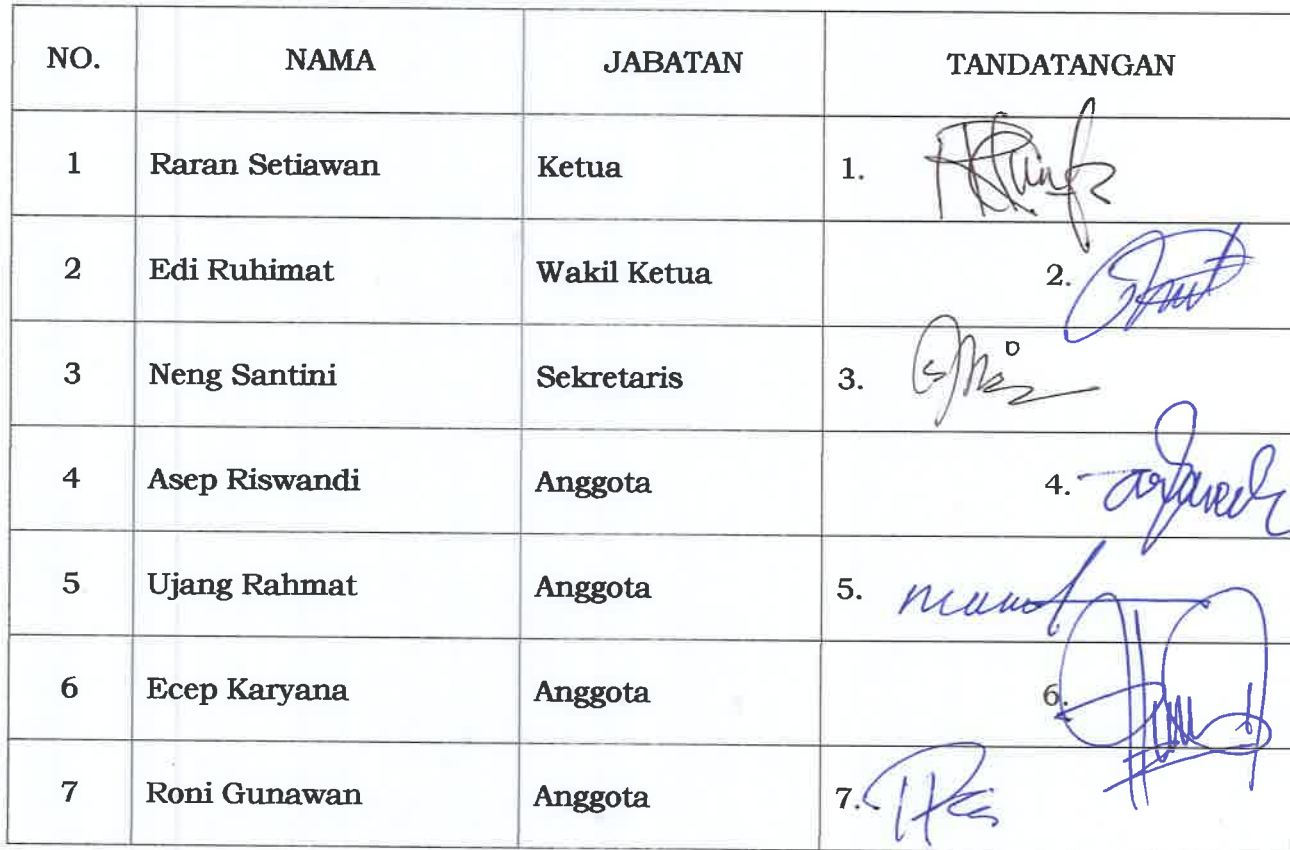 NO. NAMA JABATAN TANDATANGAN
1 Raran Setiawan Ketua 1.
2 Edi Ruhimat Wakil Ketua 2.
3 Neng Santini Sekretaris 3.
4 Asep Riswandi Anggota 4.
5 Ujang Rahmat Anggota 5.
6 Ecep Karyana Anggota 6.
7 Roni Gunawan Anggota 7.